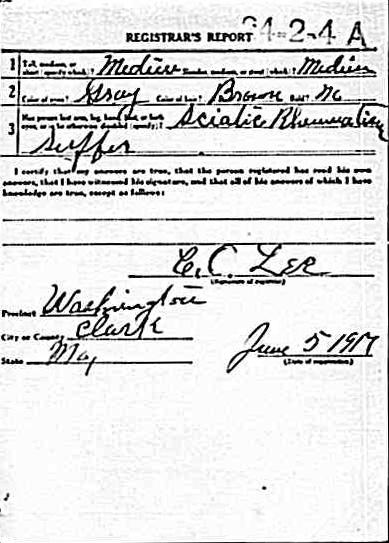 REGISTRAR'S REPORT 24-2-4 A
1 Tall, medium, or short (specify which)? Medium Slender, medium, or stout (which)? Medium
2 Color of eyes? Gray Color of hair? Brown Bald? No
3 Has person lost arm, leg, hand, foot, or both eyes, or is he otherwise disabled (specify)? Sciatic Rheumatism
suffer
I certify that my answers are true, that the person registered has read his own
answers, that I have witnessed his signature, and that all of his answers of which I have
knowledge are true, except as follows:
C. C. Lee
(Signature of registrar)
Precinct Washington
City or County Clark
State Mo
June 5 1917
(Date of registration)